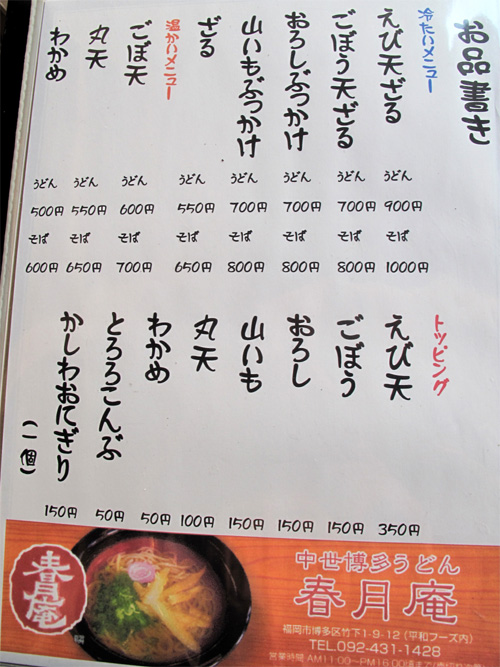 お品書き
冷たいメニュー
えび天ざる
うどん
900円
そば
1000円
ごぼう天ざる
うどん
700円
そば
800円
おろしぶっかけ
うどん
700円
そば
800円
山いもぶっかけ
うどん
700円
そば
800円
ざる
うどん
550円
そば
650円
温かいメニュー
ごぼ天
うどん
600円
そば
700円
丸天
うどん
550円
そば
650円
わかめ
うどん
500円
そば
600円
トッピング
えび天
350円
ごぼう
150円
おろし
150円
山いも
150円
丸天
100円
わかめ
50円
とろろこんぶ
50円
かしわおにぎり
(一個)
150円
春月庵
中世博多うどん
春月庵
福岡市博多区竹下1-9-12(平和フーズ内)
TEL.092-431-1428
営業時間 AM11:00〜PM16:00